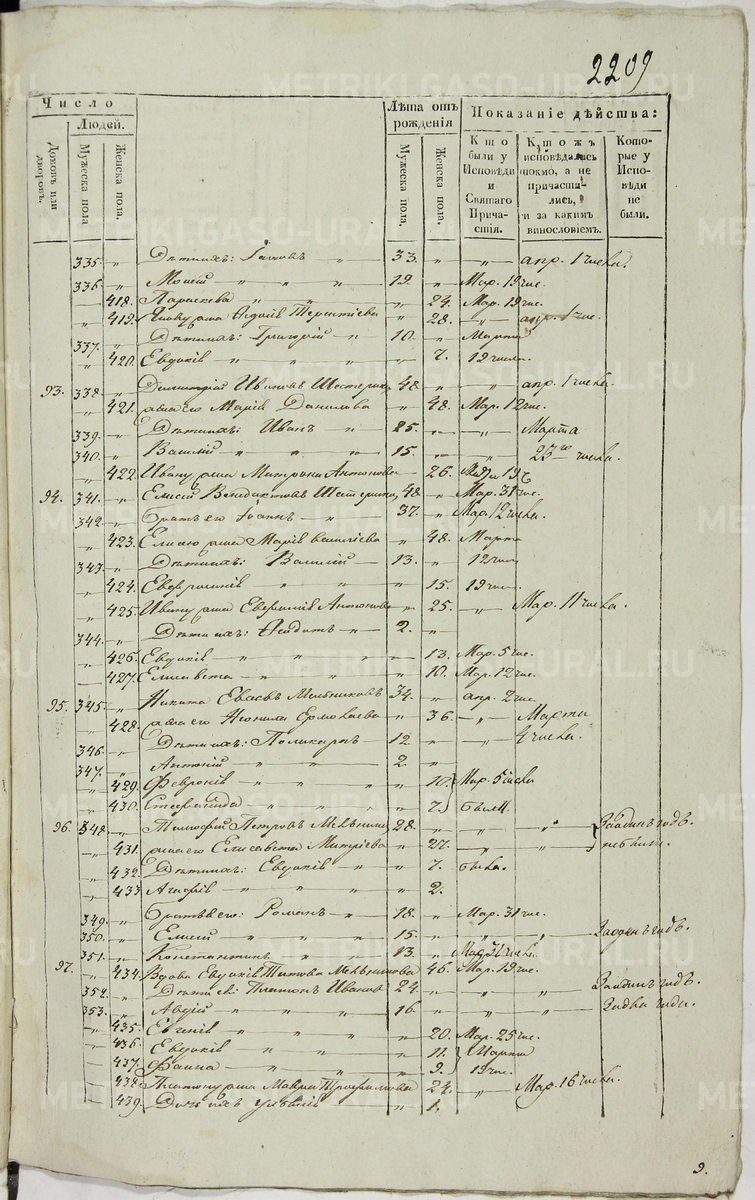 2209
Число
Людей.
Домовъ или дворовъ.
Мужеска пола
Женска пола.
Лѣта отъ рожденія
Мужеска пола.
Женска пола.
Показаніе дѣйства:
Кто были у Исповѣди и Святаго Причастія.
Кто жъ исповѣдались токмо, а не причастились, и за какимъ винословіемъ.
Которые у Исповѣди не были.
335. „ Дѣти ихъ: 33. „ „ апр. 1 числа.
336. „ Моисей „ „ 19. „ Мар. 19 чис.
„ 418. Параскева „ „ „ 24. Мар. 19 чис.
„ 419. жена Терентіева „ 28. „ апр. 1 чис.
337. „ Дѣти ихъ: Григорій „ 10. „ Марта
„ 420. Евдокія „ „ „ 7. 12 числа.
93. 338. „ Димитрій Ивановъ 48. „ „ апр. 1 числа.
„ 421. жена его Марія Данилова „ 48. Мар. 12 чис.
339. „ Дѣти ихъ: Иванъ „ 25. „ „ Марта
340. „ Василій „ „ 15. „ 23го числа.
„ 422. Ивану жена Матрона Антонова „ 26.
94. 341. „ Елисей Венедиктовъ 48. „ Мар. 31 чис.
342. „ Братъ его Іоаннъ „ 37. „ Мар. 12 числа.
„ 423. Елисею жена Марія Василіева „ 48. Марта
343. „ Дѣти ихъ: Василій „ 13. „ 12 чис.
„ 424. Евфросинія „ „ 15. 19 чис.
„ 425. Ивану жена Евфимія Антонова „ 25. „ Мар. 11 числа.
344. „ Дѣти ихъ: „ 2. „
„ 426. Евдокія „ „ „ 13. Мар. 5 чис.
„ 427. Елисавета „ „ „ 10. Мар. 12 чис.
95. 345. „ Никита Мельниковъ 34. „ апр. 2 чис.
„ 428. жена его Неонила Ермолаева „ 36. „ Марта
346. „ Дѣти ихъ: Поликарпъ 12. „ „ 4 числа.
347. „ Антоній „ „ 2. „
„ 429. Февронія „ „ „ 10. Мар. 5 числа
„ 430. „ „ „ 7. были.
96. 348. „ Тимофей Петровъ 28. „ „ „ За одинъ годъ.
„ 431. жена его Елисавета „ 27. „ „ не были.
„ 432. Дѣти ихъ: Евдокія „ „ 7. была.
„ 433 Агафія „ „ „ 2.
349. „ Братья его: Романъ „ 18. „ Мар. 31 чис.
350. „ Елисей „ 15. „ „ „ За одинъ годъ.
351. „ Константинъ „ 13. „ Мар. 31 числа.
97. „ 434. Вдова Евдокія Титова Мельникова „ 46. Мар. 19 чис.
352. „ Дѣти ея: Платонъ Ивановъ 24. „ „ „ За одинъ годъ.
353. „ Авдій „ „ 16. „ „ „ За два года.
„ 435. Евгенія „ „ „ 20. Мар. 25 чис.
„ 436. Евдокія „ „ „ 11. Марта
„ 437. Фаина „ „ „ 9. 19 чис.
„ 438. Платону жена Мавра Трофимова „ 24. „ Мар. 16 числа.
„ 439. Дочь ихъ „ 1.
9.
METRIKI.GASO-URAL.RU